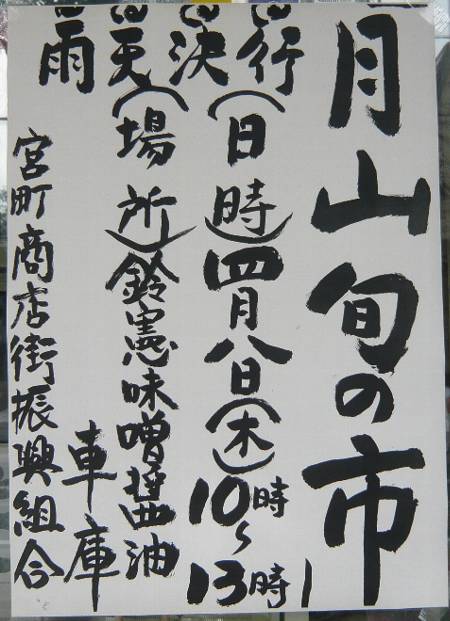 雨天決行
月山旬の市
(日時)四月八日(木)10時~13時
(場所)鈴憲味噌醤油
車庫
宮町商店街振興組合